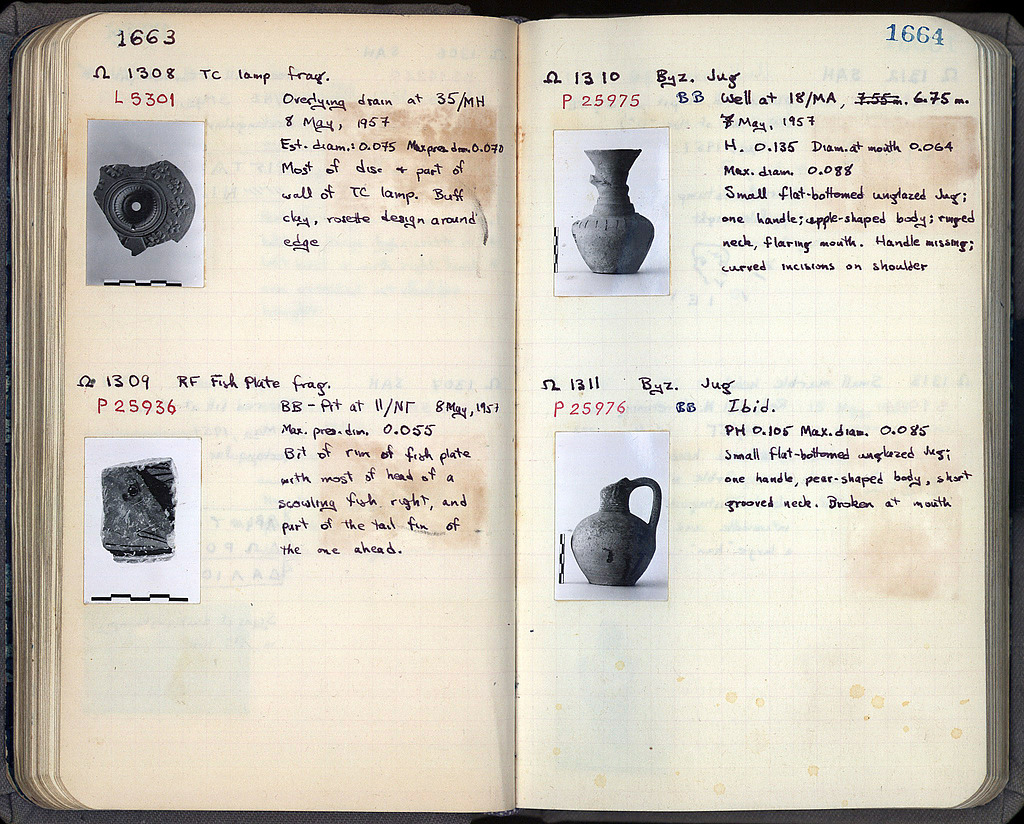 1663
Ω 1308 TC lamp frag.
L 5301 Overlying drain at 35/MH
8 May, 1957
Est. diam.: 0.075 Max pres. dim. 0.070
Most of disc + part of
wall of TC lamp. Buff
clay, rosette design around
edge
Ω 1309 RF Fish Plate frag.
P 25936 BB - Pit at 11/NT 8 May, 1957
Max. pres. dim. 0.055
Bit of rim of fish plate
with most of head of a
scowling fish right, and
part of the tail fin of
the one ahead.
1664
Ω 1310 Byz. Jug
P 25975 BB Well at 18/MA, 7.55m. 6.75 m.
7 May, 1957
H. 0.135 Diam. at mouth 0.064
Max. diam. 0.088
Small flat-bottomed unglazed Jug;
one handle; apple-shaped body; ringed
neck, flaring mouth. Handle missing;
curved incisions on shoulder
Ω 1311 Byz. Jug
P 25976 BB Ibid.
PH 0.105 Max. diam. 0.085
Small flat-bottomed unglazed Jug;
one handle, pear-shaped body, short
grooved neck. Broken at mouth